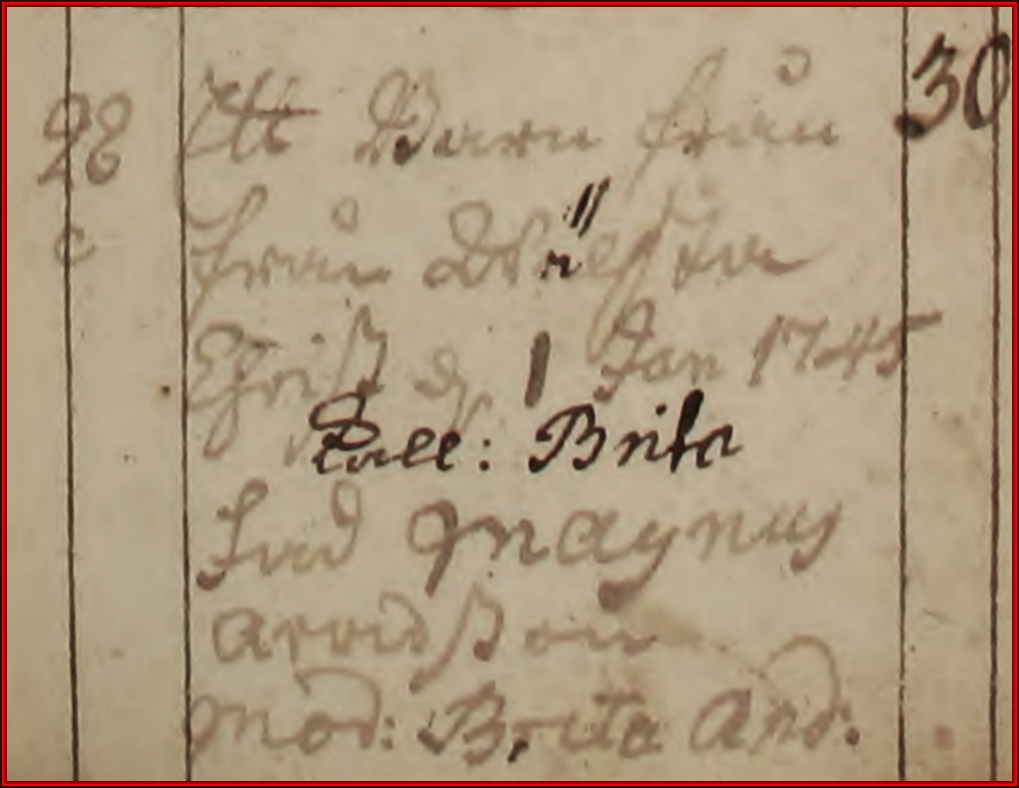 28 Ett Barn från 30
från
Christ d. 1 Jan 1745
Call: Brita
Fad Magnus
Arvidsson
Mod: Brita And: